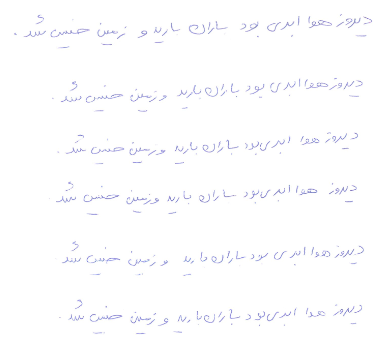 دیروز هوا ابری بود باران بارید و زمین خیس شد.
دیروز هوا ابری بود باران بارید و زمین خیس شد.
دیروز هوا ابری بود باران بارید و زمین خیس شد.
دیروز هوا ابری بود باران بارید و زمین خیس شد.
دیروز هوا ابری بود باران بارید و زمین خیس شد
دیروز هوا ابری بود باران بارید و زمین خیس شد.